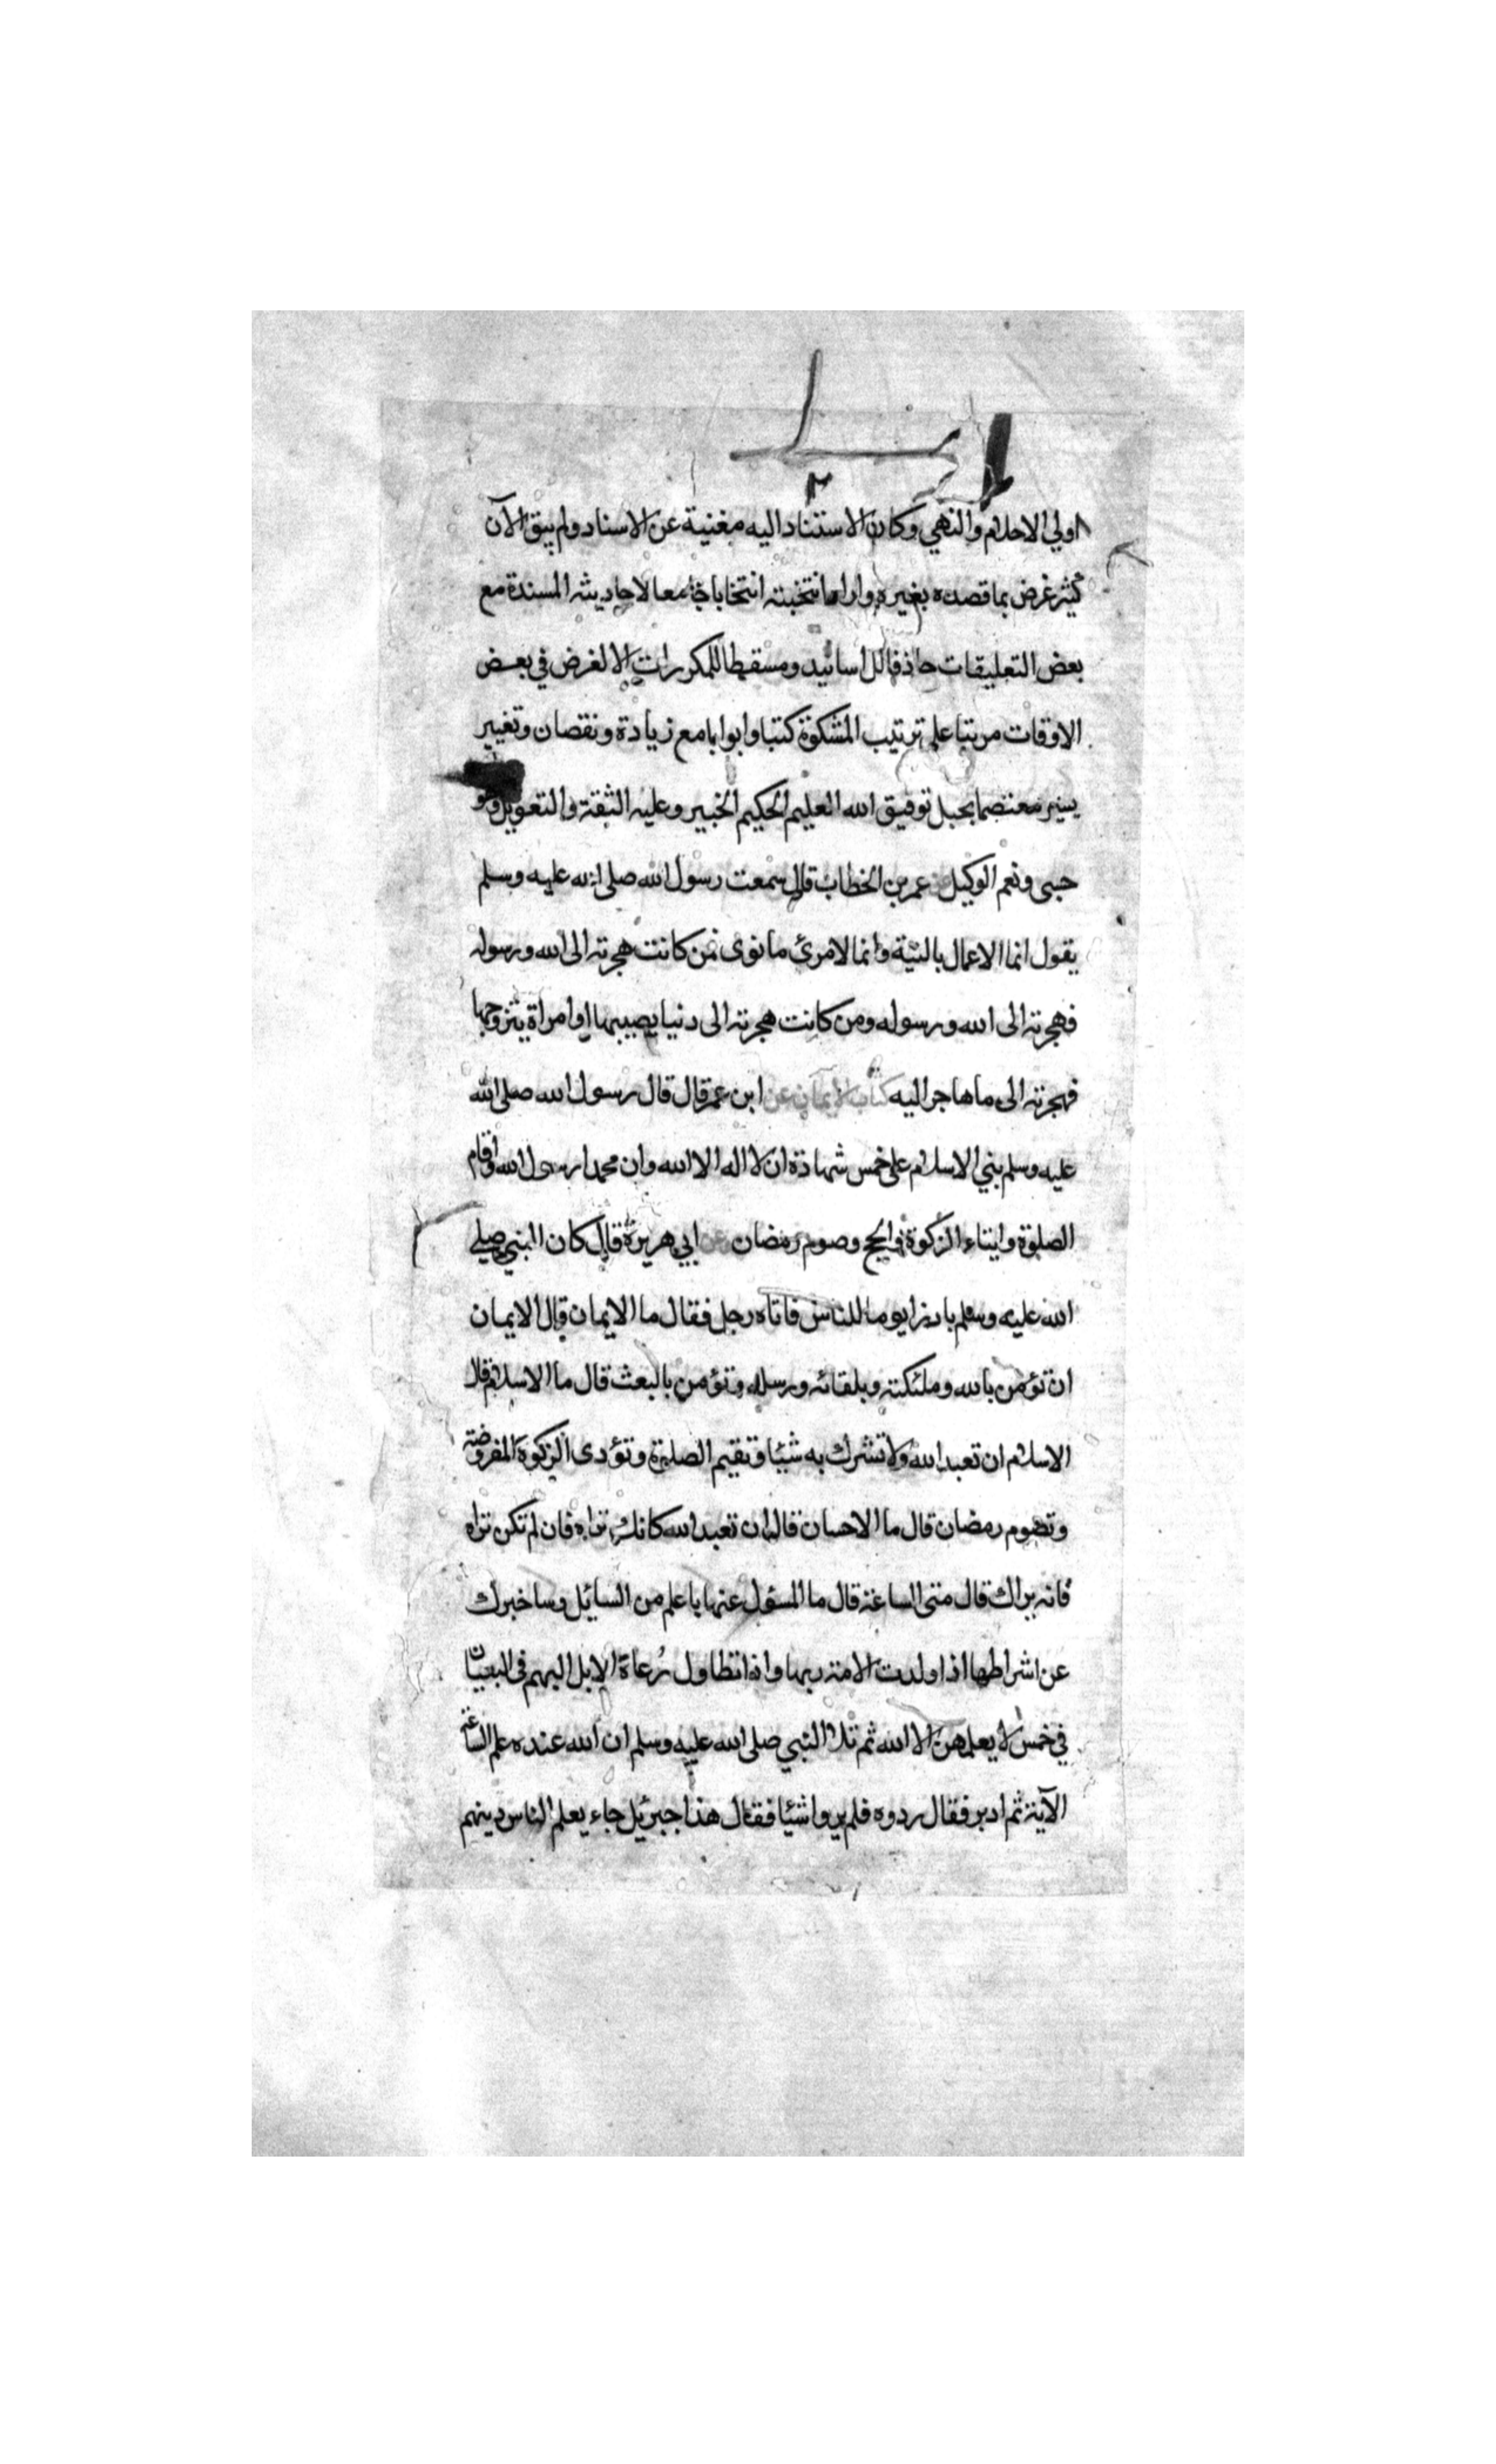 ٢
اولي الاحلام والنهي وكان الاستناد اليه مغنية عن الاسناد ولم يبق الآن
كثير غرض بما قصده بغيره وارا انتخبته انتخابا جامعا لاحاديثه المسندة مع
بعض التعليقات حاذفا للاسانيد ومسقطا للمكررات الا لغرض في بعض
الاوقات مرتبا على ترتيب المشكوة كتبا وابوابا مع زيادة ونقصان وتغيير
يسير معتصما بحبل توفيق الله العليم الحكيم الخبير وعليه الثقة والتعويل وهو
حسبى ونعم الوكيل عن عمر بن الخطاب قال سمعت رسول الله صلى الله عليه وسلم
يقول انما الاعمال بالنية وانما لامرئ ما نوى فمن كانت هجرته الى الله ورسوله
فهجرته الى الله ورسوله ومن كانت هجرته الى دنيا يصيبها او امراة يتزوجها
فهجرته الى ما هاجر اليه كتاب الايمان عن ابن عمر قال قال رسول الله صلى الله
عليه وسلم بني الاسلام على خمس شهادة ان لا اله الا الله وان محمدا رسول الله واقام
الصلوة وايتاء الزكوة والحج وصوم رمضان عن ابي هريرة قال كان النبي صلى
الله عليه وسلم بارزا يوما للناس فاتاه رجل فقال ما الايمان قال الايمان
ان تؤمن بالله وملئكته وبلقائه ورسله وتؤمن بالبعث قال ما الاسلام قال
الاسلام ان تعبد الله ولا تشرك به شيئا وتقيم الصلوة وتؤدى الزكوة المفروضة
وتصوم رمضان قال ما الاحسان قال ان تعبد الله كانك تراه فان لم تكن تراه
فانه يراك قال متى الساعة قال ما المسؤل عنها باعلم من السائل وساخبرك
عن اشراطها اذا ولدت الامة ربها واذا تطاول رُعاة الابل البهم في البنيان
في خمس لا يعلمهن الا الله ثم تلا النبي صلى الله عليه وسلم ان الله عنده علم الساعة
الآية ثم ادبر فقال ردوه فلم يروا شيئا فقال هذا جبرئيل جاء يعلم الناس دينهم